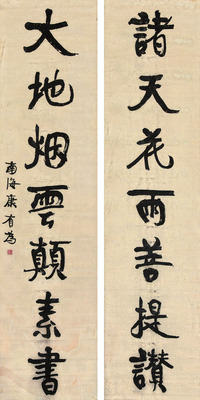 諸天花雨菩提讚
大地烟雲顛素書
南海康有為